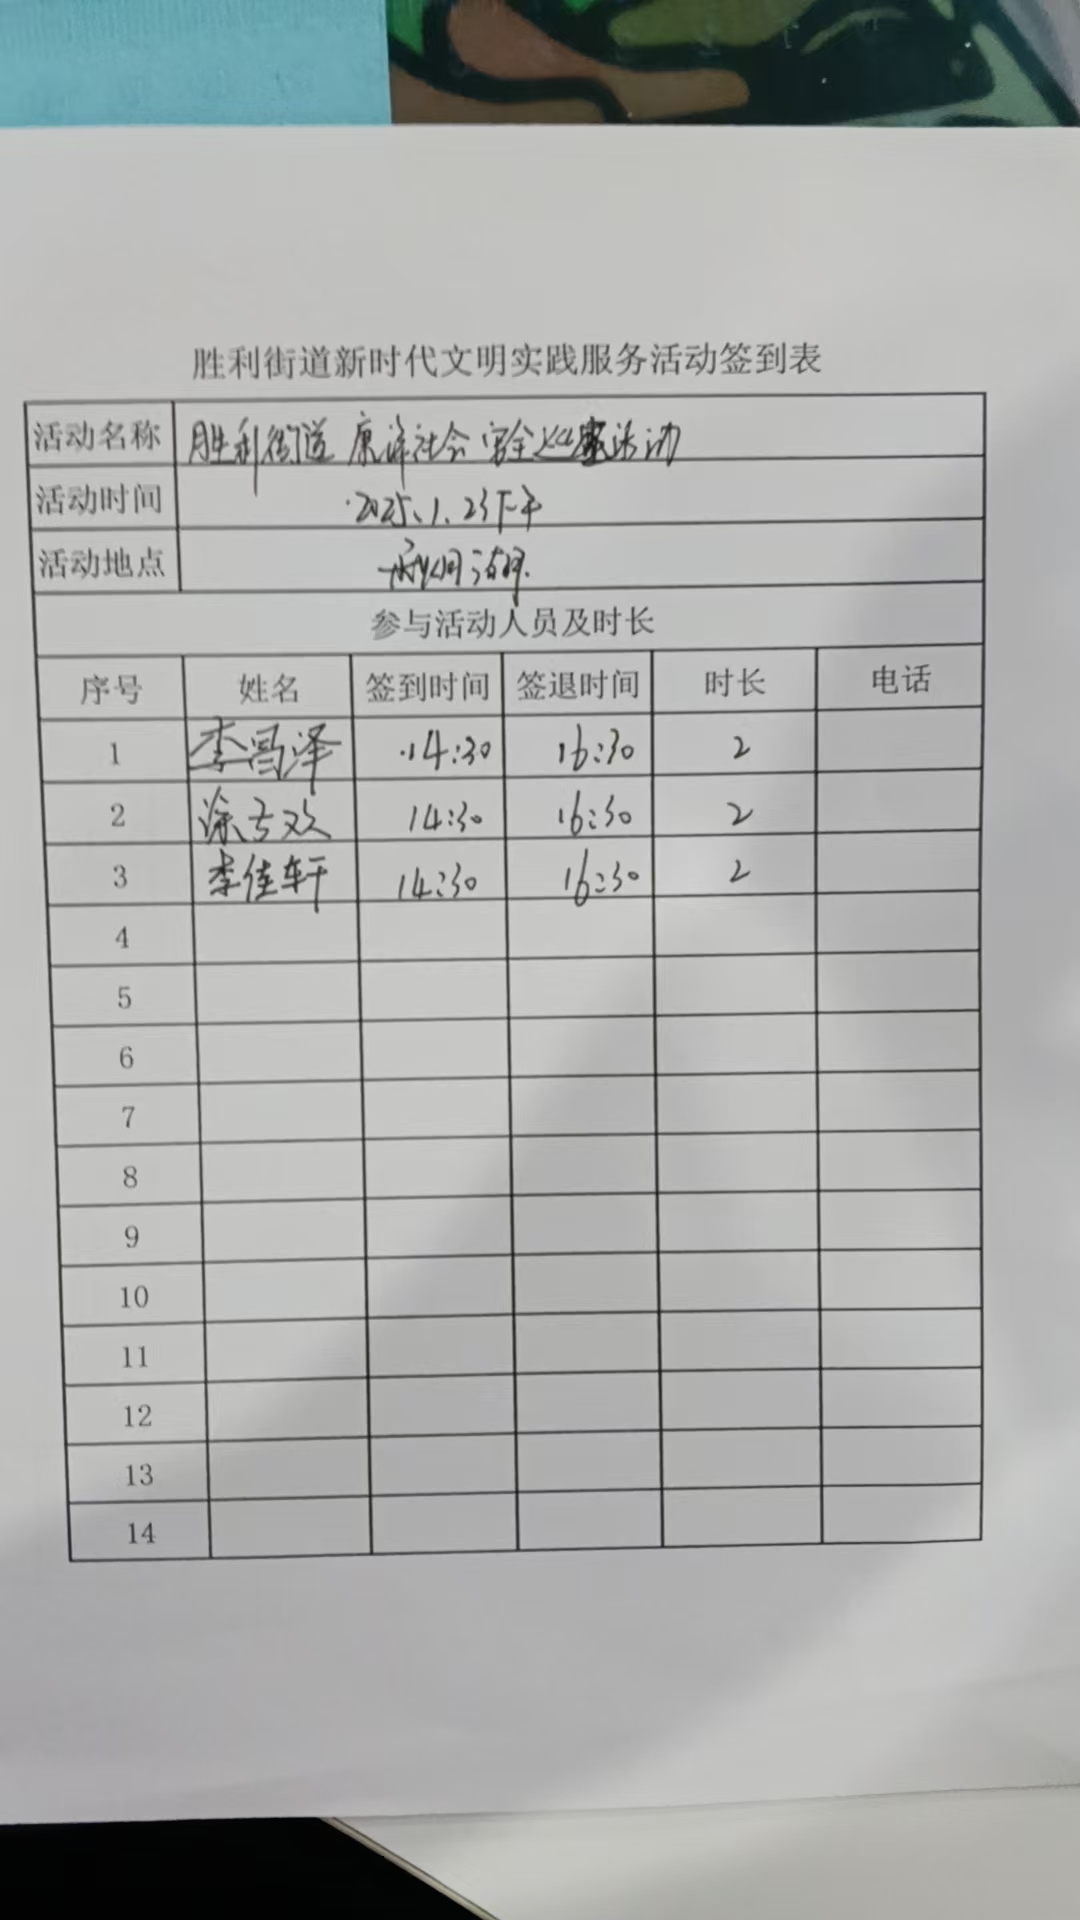 胜利街道新时代文明实践服务活动签到表
活动名称 胜利街道 康泽社会 安全巡查活动
活动时间 2025.1.23下午
活动地点
参与活动人员及时长
序号 姓名 签到时间 签退时间 时长 电话
1 李昌泽 14:30 16:30 2
2 14:30 16:30 2
3 李佳轩 14:30 16:30 2
4
5
6
7
8
9
10
11
12
13
14